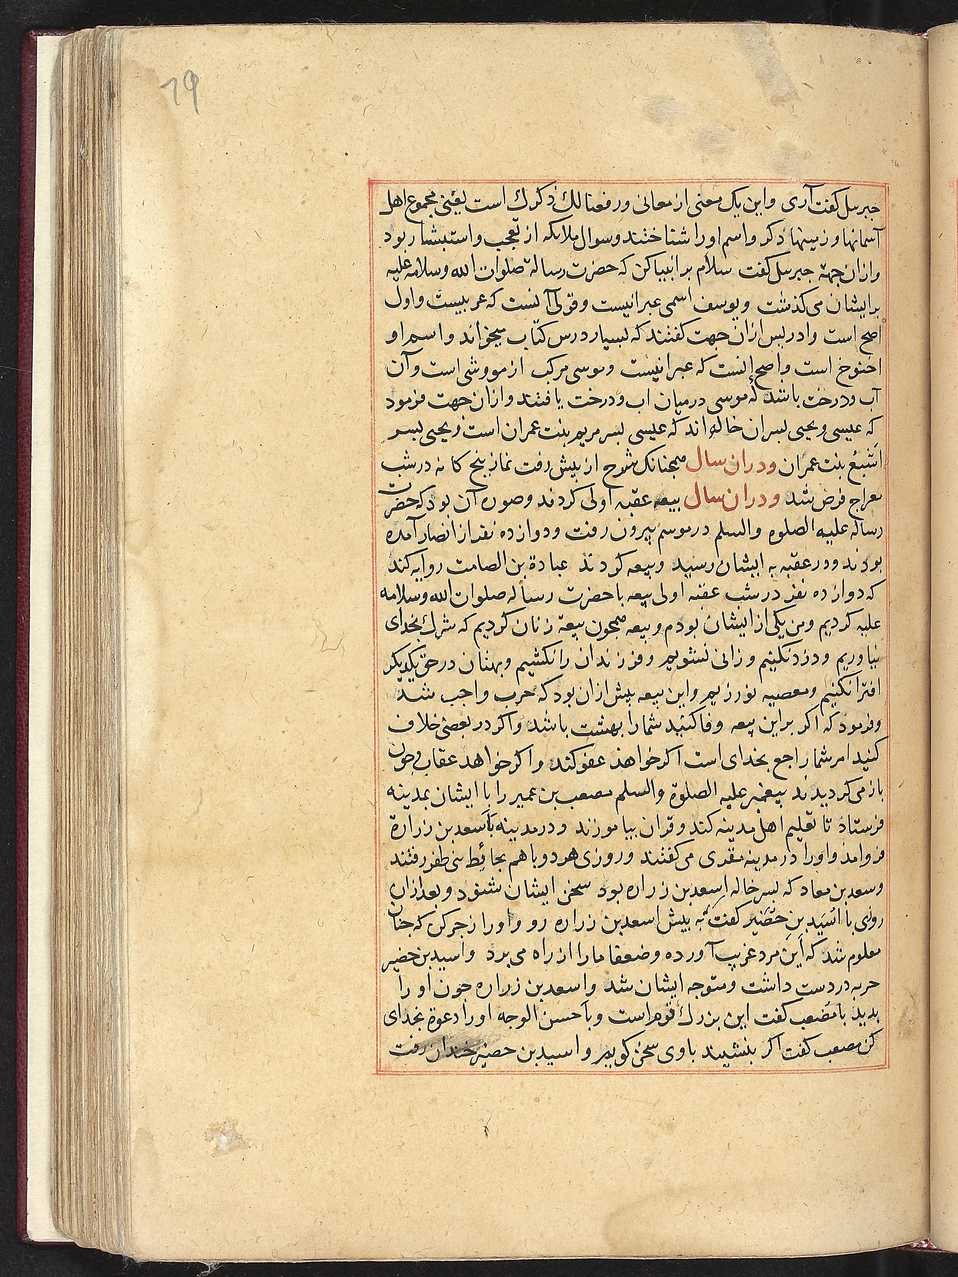 79
جبرئیل گفت آری و این یک معنی از معانی ورفعنا لك ذكرك است یعنی مجموع اهل
آسمانها و زمینها ذکر و اسم او را شناختند و سوال ملایکه از تعجب و استبشار بود
و ازان جهة جبرئیل گفت سلام بر انبیا کن که حضرت رسالة صلوات الله وسلامه علیه
بر ایشان می گذشت و یوسف اسمی عبرانیست و قولی آنست که عربیست و اول
اصح است و ادریس ازان جهت گفتند که بسیار درس کتاب میخواند و اسم او
اخنوخ است و اصح انست که عبرانیست و موسی مرکب از مو و شی است و آن
آب و درخت باشد که موسی در میان اب و درخت یافتند و ازان جهت فرمود
که عیسی و یحیی پسران خاله اند که عیسی پسر مریم بنت عمران است و یحیی پسر
اشبع بنت عمران ودران سال همچنانک شرح از پیش رفت نماز پنج کانه در شب
معراج فرض شد ودران سال بیعه عقبه اولی کردند و صورة آن بود که حضرت
رسالة علیه الصلوة والسلم در موسم بیرون رفت و دوازده نفر از انصار آمده
بودند و در عقبه به ایشان رسید و بیعه کردند عبادة بن الصامت روایه کند
که دوازده نفر در شب عقبه اولی بیعه با حضرت رسالة صلوات الله وسلامه
علیه کردیم و من یکی از ایشان بودم و بیعه همچون بیعه زنان کردیم که شرك بخدای
نیاوریم و دزد نکنیم و زانی نشویم و فرزندان را نکشیم و بهتان در حق یکدیکر
افترا نکنیم و معصیه نورزیم و این بیعه پیش ازان بود که حرب واجب شد
و فرمود که اکر بر این بیعه وفا کنید شما را بهشت باشد و اکر در بعضی خلاف
کنید امر شما راجع بخدای است اکر خواهد عفو کند و اکر خواهد عقاب و چون
باز می کردیدند پیغمبر علیه الصلوة والسلم مصعب بن عمیر را با ایشان بمدینه
فرستاد تا تعلیم اهل مدینه کند و قران بیاموزند و در مدینه با سعد بن زرارة
فرو آمد و او را در مدینه مقری می گفتند و روزی هردو با هم بحایط بنی ظفر رفتند
و سعد بن معاد که پسر خاله اسعد بن زراره بود سخن ایشان شنود و بعد ازان
روزی با اسید بن حضیر گفت که به پیش اسعد بن زراره رو و او را زجر کن که چنان
معلوم شد که این مرد غریب آورده و ضعفا ما را از راه می برد و اسید بن حضیر
حربه در دست داشت و متوجه ایشان شد و اسعد بن زراره چون او را
بدید با مصعب گفت این بزرك قوم است و باحسن الوجه او را دعوة بخدای
کن مصعب گفت اکر بنشیند با وی سخن کویم و اسید بن حضیر خندان رفت